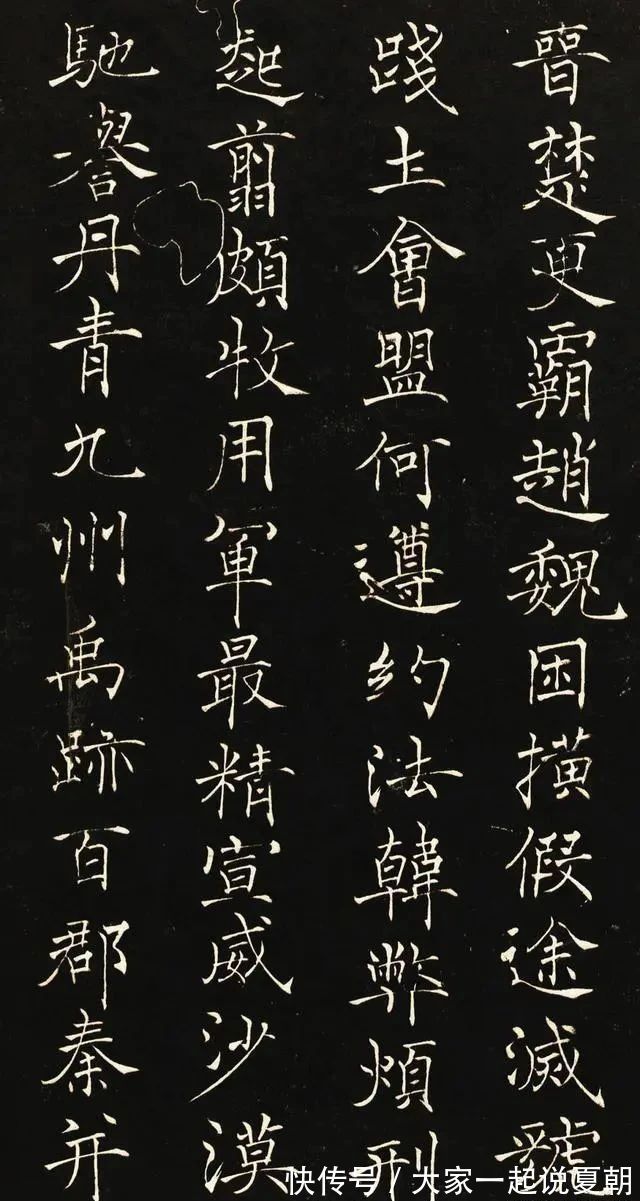 晉楚更霸趙魏困横假途滅虢
踐土會盟何遵約法韓弊煩刑
起翦頗牧用軍最精宣威沙漠
馳譽丹青九州禹跡百郡秦并
快传号/大家一起说夏朝